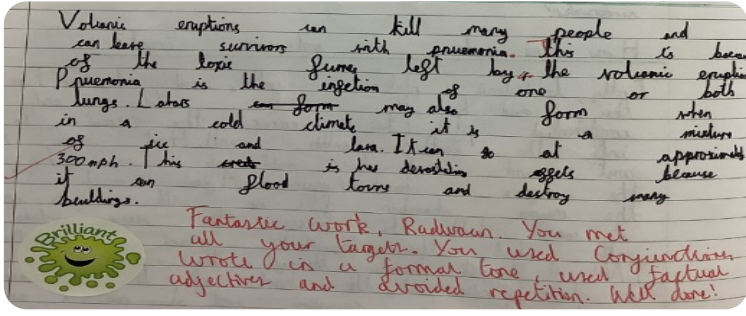 Volcanic eruptions can kill many people and
can leave survivors with pnuemonia. This is becau
of the toxic fumes left by the volcanic eruptio
Pnuemonia is the infection of one or both
lungs. Lahars may also form when
in a cold climate it is a mixture
of ice and lava. It can go at approximately
300mph. This is has devastating effects because
it can flood towns and destroy many
buildings.
Brilliant
Fantastic work, Radwaan. You met
all your targets. You used Conjunctions
wrote in a formal tone, used factual
adjectives and avoided repetition. Well done!